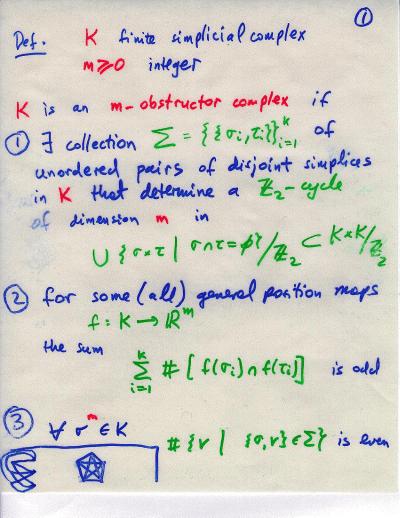 ①
Def. K finite simplicial complex
m≥0 integer
K is an m-obstructor complex if
① ∃ collection Σ = {{σᵢ,τᵢ}}ᵢ₌₁ᵏ of
unordered pairs of disjoint simplices
in K that determine a ℤ₂-cycle
of dimension m in
∪{σ×τ | σ∩τ=φ}/ℤ₂ ⊂ K×K/ℤ₂
② for some (all) general position maps
f: K → ℝᵐ
the sum
∑ᵢ₌₁ᵏ #[f(σᵢ)∩f(τᵢ)] is odd
③ ∀ σᵐ ∈ K
#{v | {σ,v}∈Σ} is even